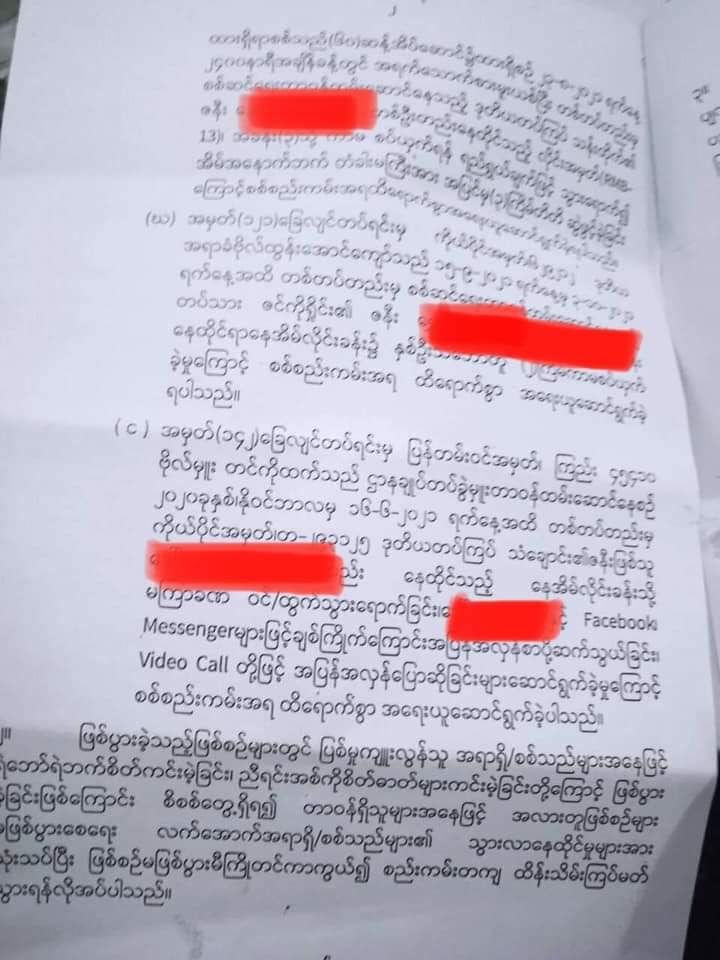 ၂
ထားရှိရာစစ်သည်(၆၀)ဆန့်အိပ်ဆောင်၌ထားရှိစဉ်
၂၄၀၀နာရီအချိန်ခန့်တွင် အရက်သောက်စားမူးယစ်ပြီး တစ်တပ်တည်းမှ
ဆောင်နေသည့် ဒုတိယတပ်ကြပ်
ဇနီး တစ်ဦးတည်းနေထိုင်သည့်
13)၊ စပ်ယှက်ရန် ရည်ရွယ်ချက်ဖြင့် သွားရောက်၍
အိမ်အနောက်ဘက် တံခါးမကြီးအား အပြင်မှ(၃)ကြိမ်တိတိ ဆွဲဖွင့်ခဲ့ခြင်း
ကြောင့်စစ်စည်းကမ်းအရထိရောက်စွာအရေးယူဆောင်ရွက်ခဲ့ရပါသည်။
(ဃ) အမှတ်(၁၂၁)ခြေလျင်တပ်ရင်းမှ ကိုယ်ပိုင်အမှတ်၊ ဒုတိယ
အရာခံဗိုလ်ထွန်းအောင်ကျော်သည် ၁၅-၉-၂၀၂၁ ရက်နေ့မှ
ရက်နေ့အထိ တစ်တပ်တည်းမှ
တပ်သား ဇင်ကိုရှိုင်း၏ ဇနီး
နေထိုင်ရာနေအိမ်လိုင်းခန်း၌
ခဲ့မှုကြောင့် စစ်စည်းကမ်းအရ ထိရောက်စွာ အရေးယူဆောင်ရွက်ခဲ့
ရပါသည်။
(င) အမှတ်(၁၄၂)ခြေလျင်တပ်ရင်းမှ ပြန်တမ်းဝင်အမှတ်၊ ကြည်း ၄၅၄၁၀
ဗိုလ်မှူး တင်ကိုထက်သည် ဌာနချုပ်တပ်ခွဲမှူးတာဝန်ထမ်းဆောင်နေစဉ်
၂၀၂၀ခုနှစ်၊နိုဝင်ဘာလမှ ၁၆-၆-၂၀၂၁ ရက်နေ့အထိ တစ်တပ်တည်းမှ
ကိုယ်ပိုင်အမှတ်၊တ- ဒုတိယတပ်ကြပ် သံချောင်း၏ဇနီးဖြစ်သူ
နေထိုင်သည့် နေအိမ်လိုင်းခန်းသို့
မကြာခဏ ဝင်/ထွက်သွားရောက်ခြင်း၊ Facebook၊
Messengerများဖြင့်ချစ်ကြိုက်ကြောင်းအပြန်အလှန်စာပို့ဆက်သွယ်ခြင်း၊
Video Call တို့ဖြင့် အပြန်အလှန်ပြောဆိုခြင်းများဆောင်ရွက်ခဲ့မှုကြောင့်
စစ်စည်းကမ်းအရ ထိရောက်စွာ အရေးယူဆောင်ရွက်ခဲ့ပါသည်။
၂။ ဖြစ်ပွားခဲ့သည့်ဖြစ်စဉ်များတွင် ပြစ်မှုကျူးလွန်သူ အရာရှိ/စစ်သည်များအနေဖြင့်
ရဲဘော်ရဲဘက်စိတ်ကင်းမဲ့ခြင်း၊ ညီရင်းအစ်ကိုစိတ်ဓာတ်များကင်းမဲ့ခြင်းတို့ကြောင့် ဖြစ်ပွား
ခဲ့ခြင်းဖြစ်ကြောင်း စိစစ်တွေ့ရှိရ၍ တာဝန်ရှိသူများအနေဖြင့် အလားတူဖြစ်စဉ်များ
မဖြစ်ပွားစေရေး လက်အောက်အရာရှိ/စစ်သည်များ၏ သွားလာနေထိုင်မှုများအား
သုံးသပ်ပြီး ဖြစ်စဉ်မဖြစ်ပွားမီကြိုတင်ကာကွယ်၍ စည်းကမ်းတကျ ထိန်းသိမ်းကြပ်မတ်
သွားရန်လိုအပ်ပါသည်။